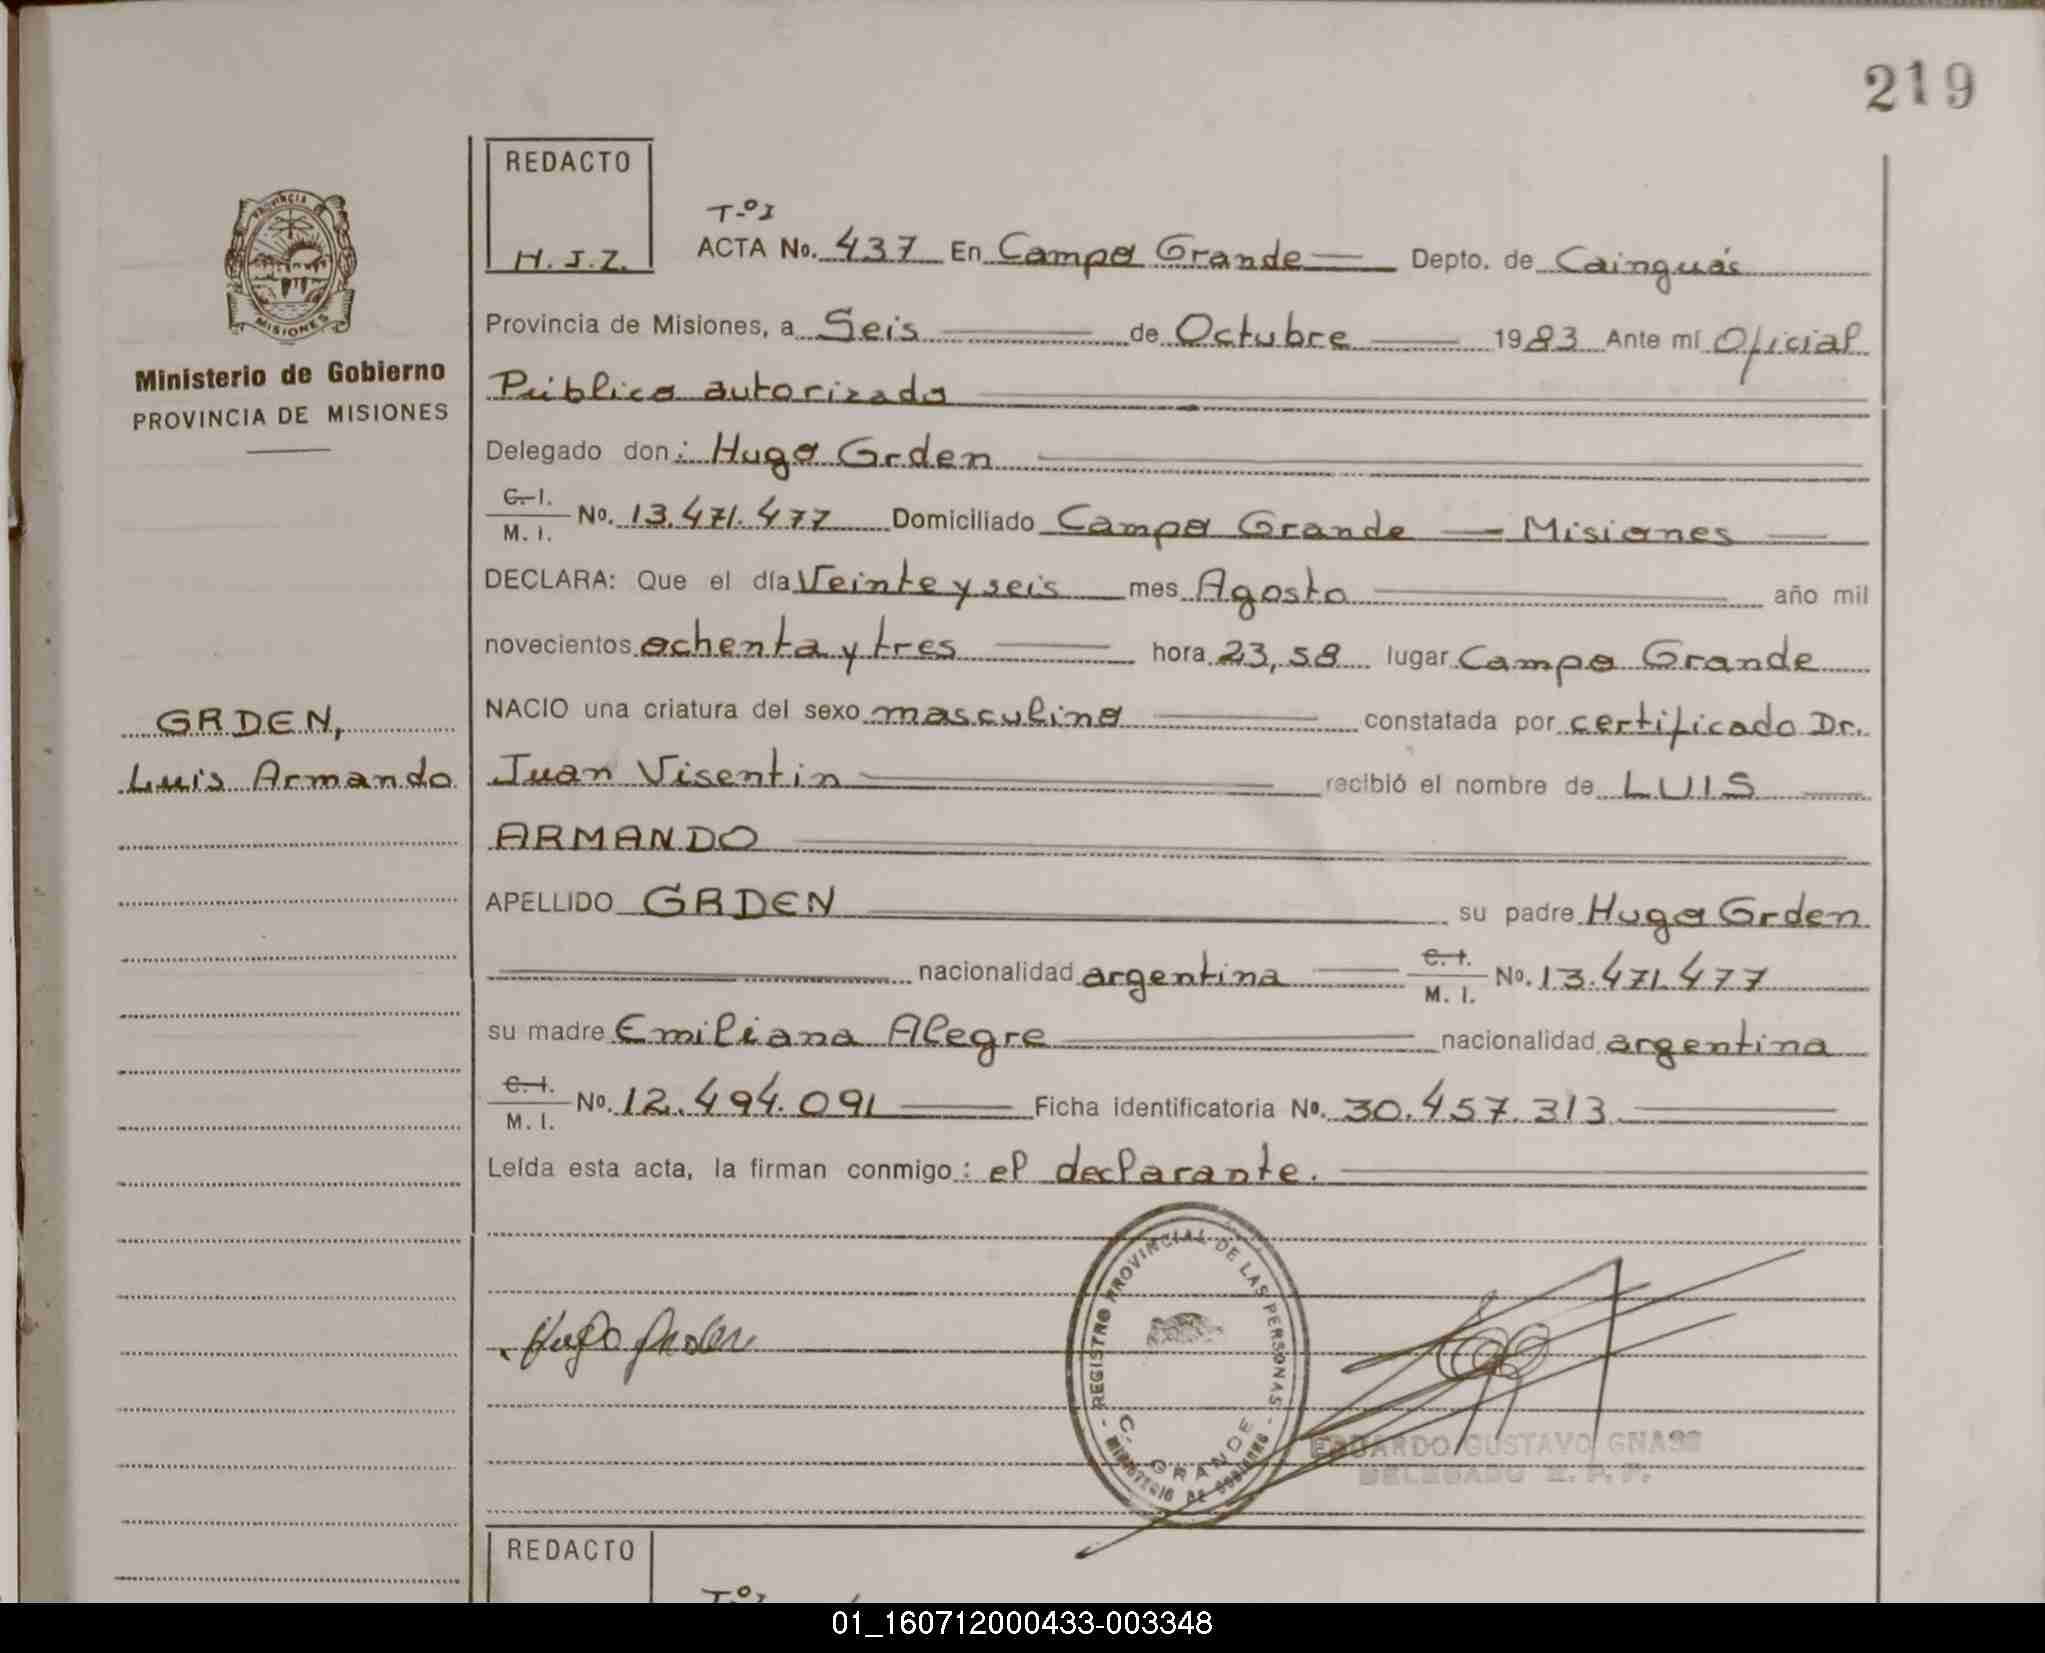 219
REDACTO
H.J.Z.
T-º I
ACTA No. 437 En Campo Grande Depto. de Cainguás
Provincia de Misiones, a Seis de Octubre 1983 Ante mí Oficial
Público autorizado
Delegado don: Hugo Grden
C. I.
M. I.
No. 13.471.477 Domiciliado Campo Grande — Misiones
DECLARA: Que el día Veinte y seis mes Agosto año mil
novecientos ochenta y tres hora 23,58 lugar Campo Grande
NACIO una criatura del sexo masculino constatada por certificado Dr.
Juan Visentin recibió el nombre de LUIS
ARMANDO
APELLIDO GRDEN su padre Hugo Grden
nacionalidad argentina C. I. M. I. No. 13.471.477
su madre Emiliana Alegre nacionalidad argentina
C. I.
M. I.
No. 12.494.091 Ficha identificatoria No. 30.457.313
Leída esta acta, la firman conmigo: el declarante.
PROVINCIA
MISIONES
Ministerio de Gobierno
PROVINCIA DE MISIONES
GRDEN,
Luis Armando
Hugo Grden
REGISTRO PROVINCIAL DE LAS PERSONAS
C. GRANDE
MINISTERIO DE GOBIERNO
EDUARDO GUSTAVO GNASS
DELEGADO R. P. P.
REDACTO
T-º I
01_160712000433-003348